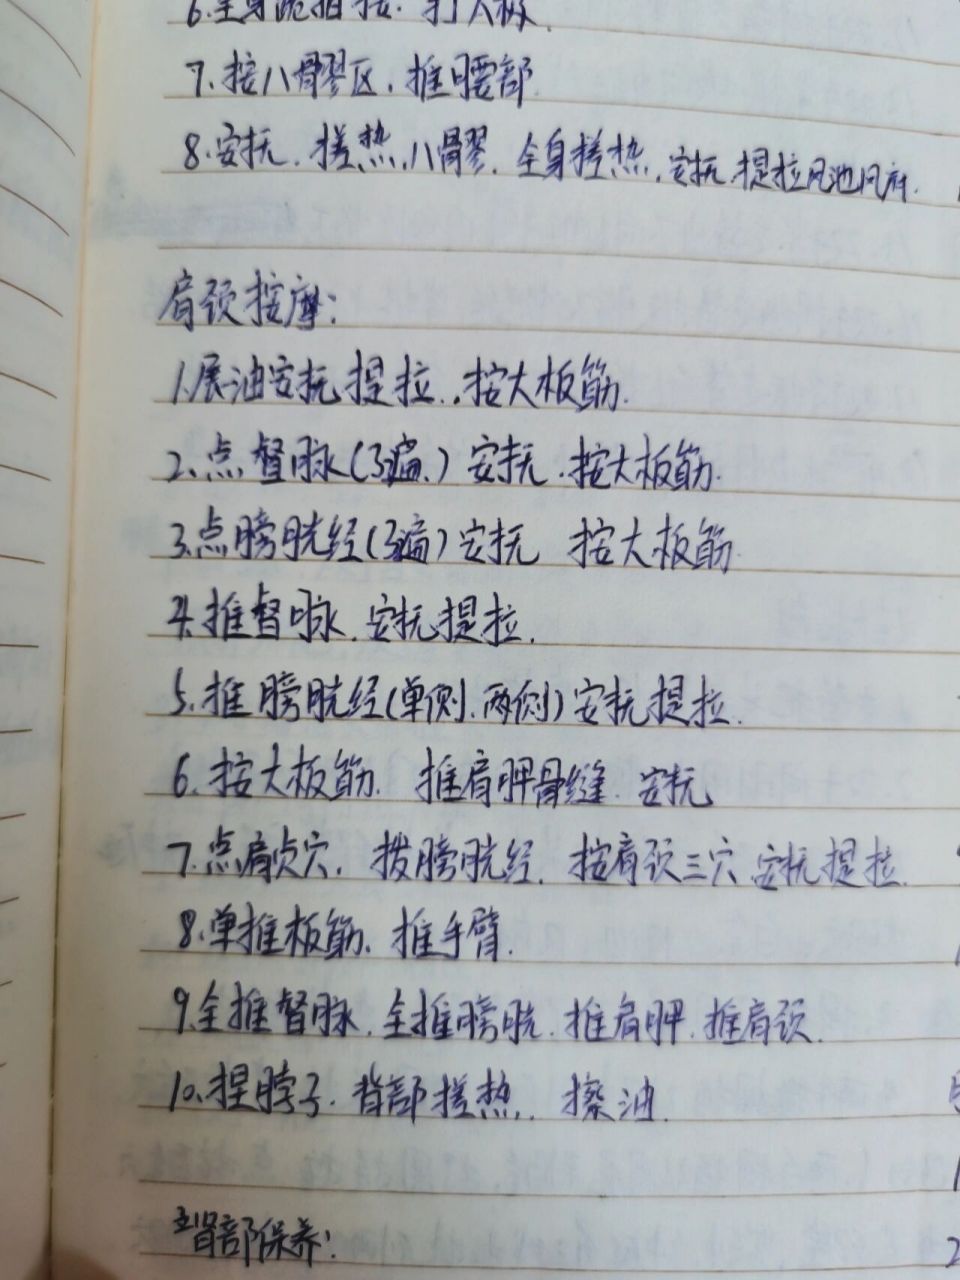 6.全身 拍 按. 打大板
7.按八髎区.推腰部
8.安抚.搓热.八髎.全身搓热.安抚.提拉风池风府.
肩颈按摩:
1.展油安抚提拉.按大板筋.
2.点督脉(3遍.)安抚.按大板筋.
3.点膀胱经(3遍)安抚 按大板筋.
4.推督脉.安抚提拉.
5.推膀胱经(单侧.两侧)安抚提拉.
6.按大板筋.推肩胛骨缝.安抚
7.点肩贞穴.拨膀胱经.按肩颈三穴 安抚提拉.
8.单推板筋.推手臂.
9.全推督脉.全推膀胱.推肩胛.推肩颈.
10.捏脖子.背部搓热.擦油.
肾部保养: